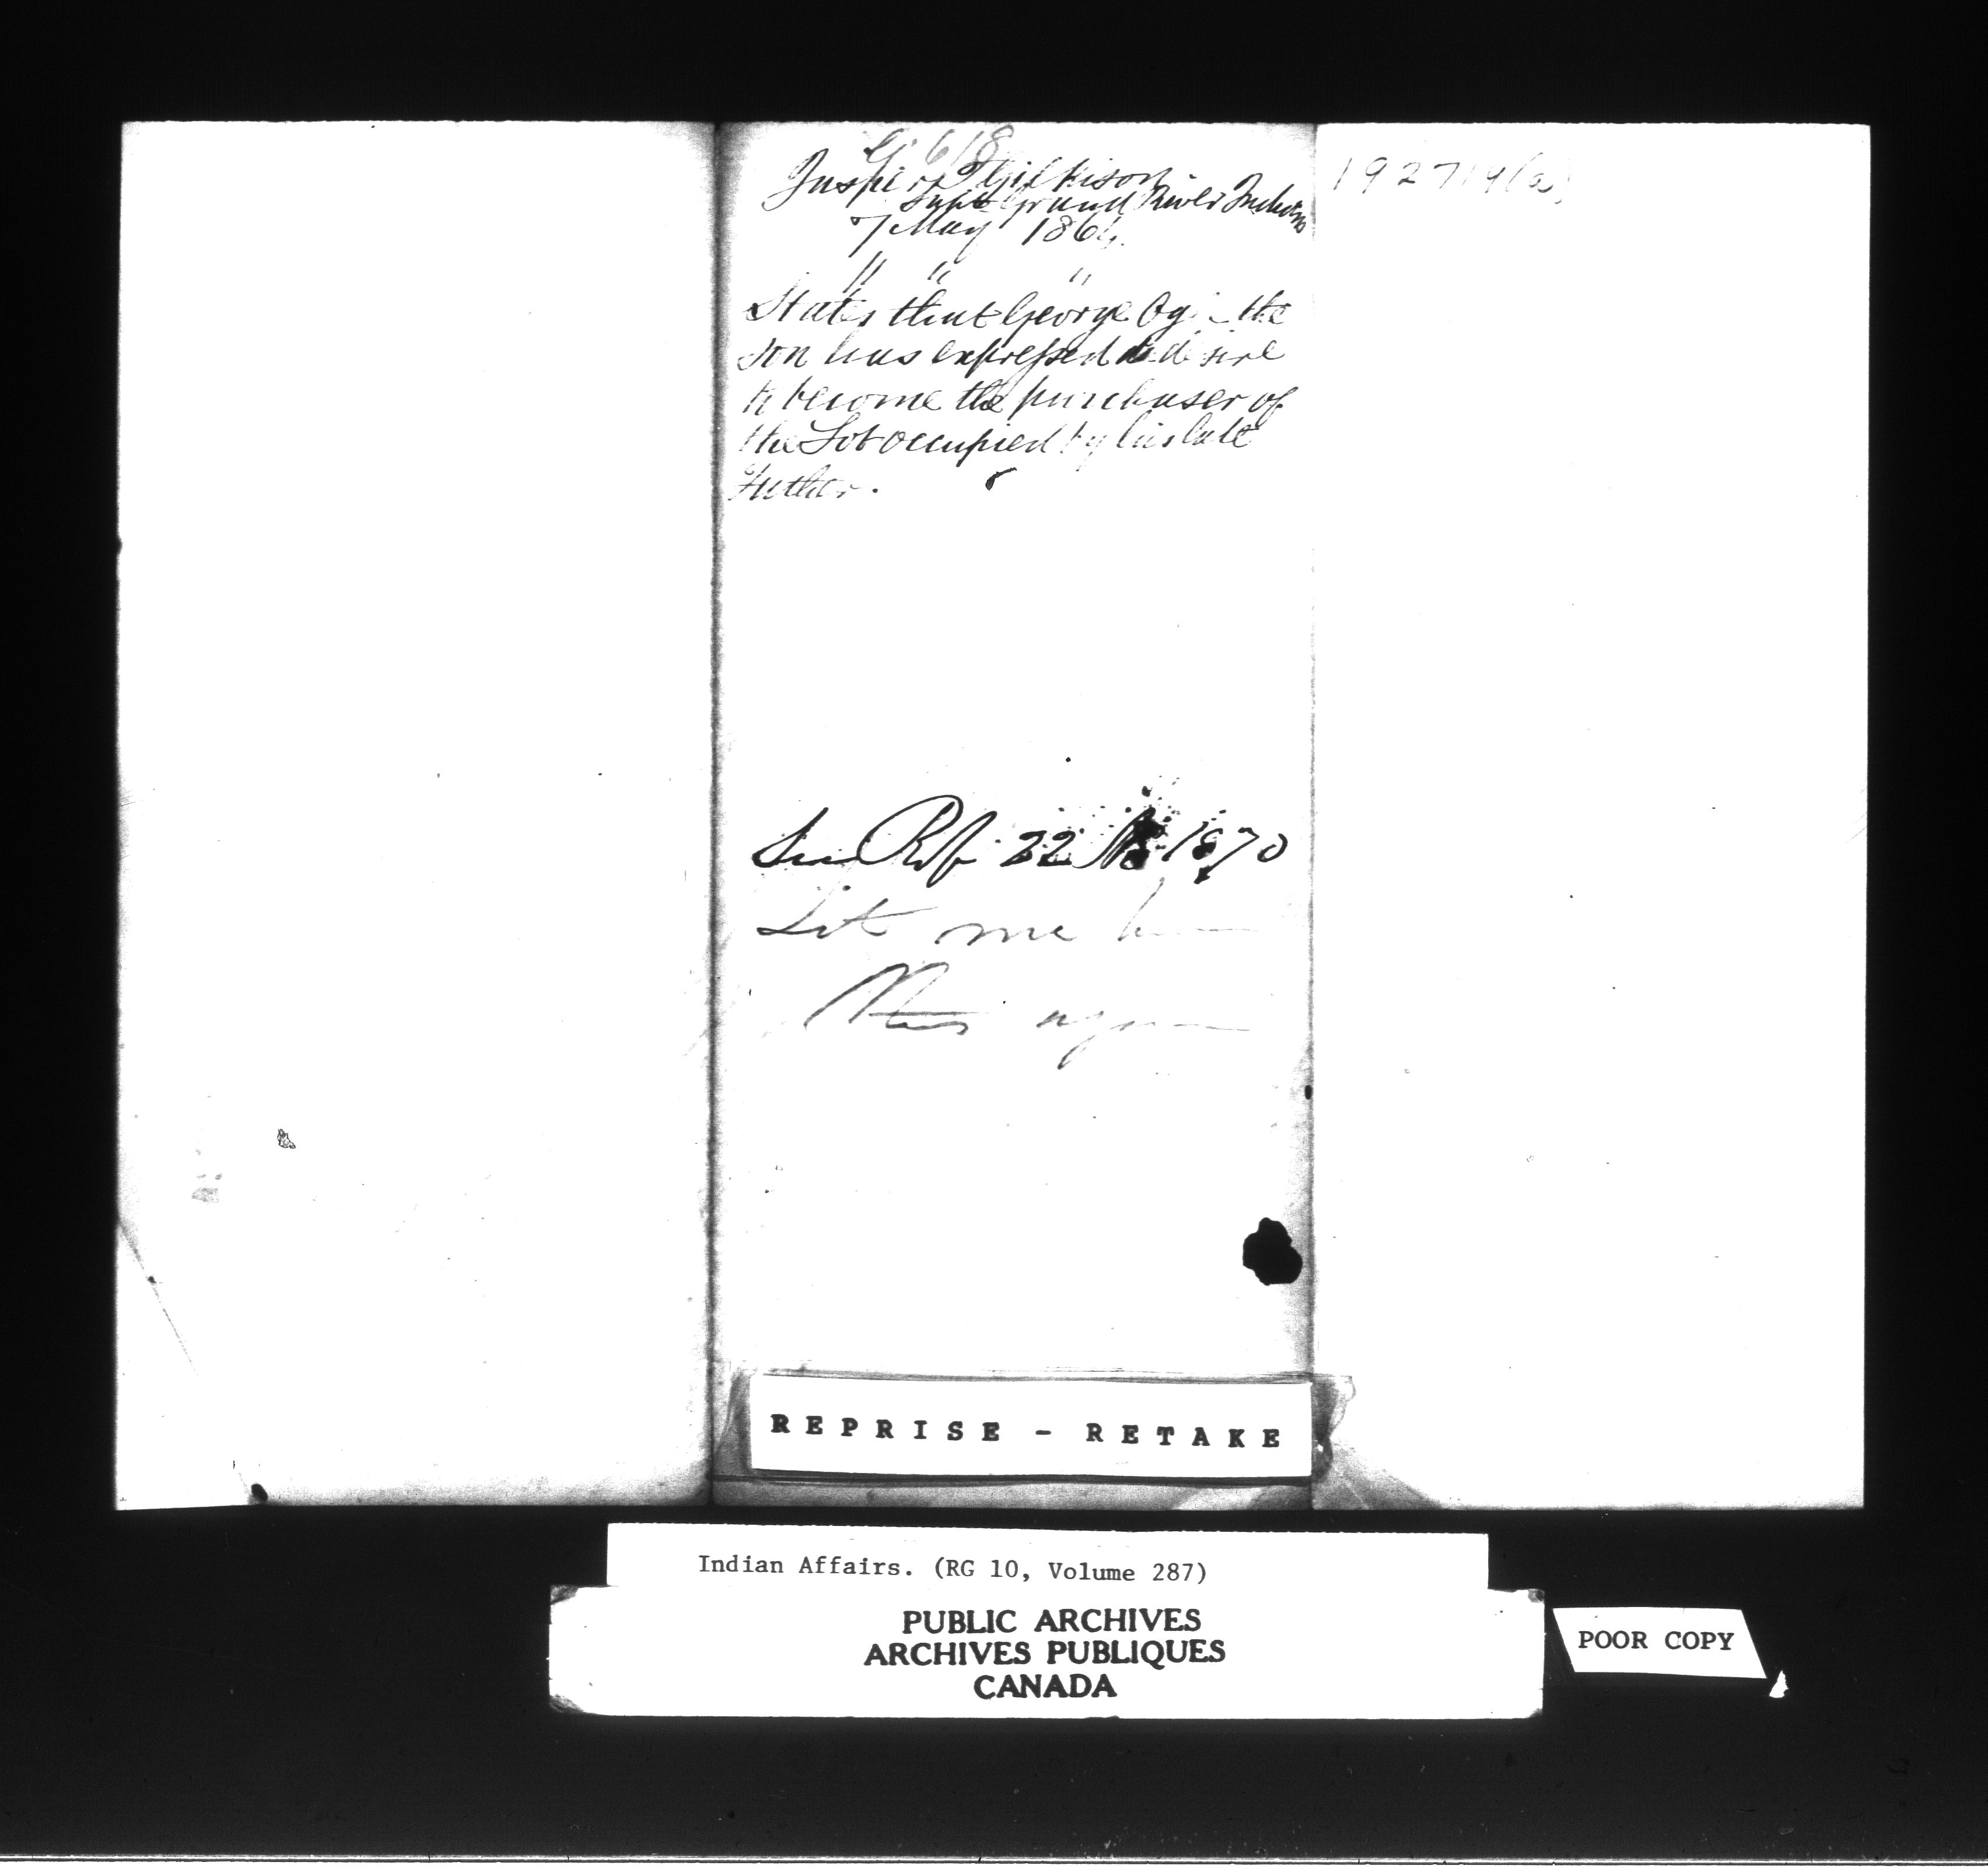 G. 618
Jasper T Gilkison
Supt Grand River Indians
7 May 1864
" " "
States that George the
son has expressed a desire
to become the purchaser of
the Lot occupied by his late
Father.
See 22 1870
Let me
this
192719(a)
REPRISE - RETAKE
Indian Affairs. (RG 10, Volume 287)
PUBLIC ARCHIVES
ARCHIVES PUBLIQUES
CANADA
POOR COPY